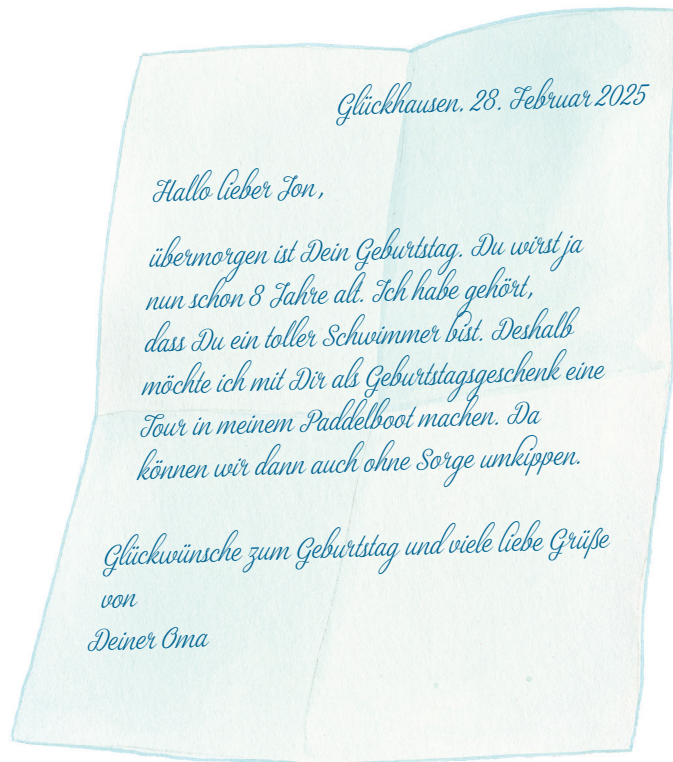 Glückhausen. 28. Februar 2025
Hallo lieber Jon,
übermorgen ist Dein Geburtstag. Du wirst ja
nun schon 8 Jahre alt. Ich habe gehört,
dass Du ein toller Schwimmer bist. Deshalb
möchte ich mit Dir als Geburtstagsgeschenk eine
Tour in meinem Paddelboot machen. Da
können wir dann auch ohne Sorge umkippen.
Glückwünsche zum Geburtstag und viele liebe Grüße
von
Deiner Oma